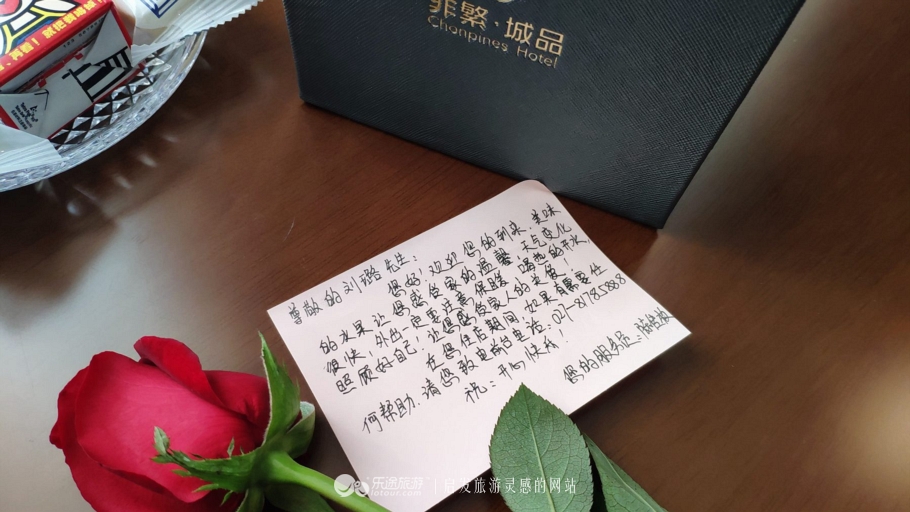 菲繁·城品
Chonpines Hotel
尊敬的刘璐先生:
您好!欢迎您的到来,美味
的水果让您感受家的温馨,天气变化
很快,外出一定要注意保暖,喝热的开水,
照顾好自己,让您感受家人的关爱!
在您住店期间,如果有需要任
何帮助,请您致电前台电话:021-81785888
祝:开心快乐!
您的服务员:陈
乐途旅游
lotour.com
启发旅游灵感的网站